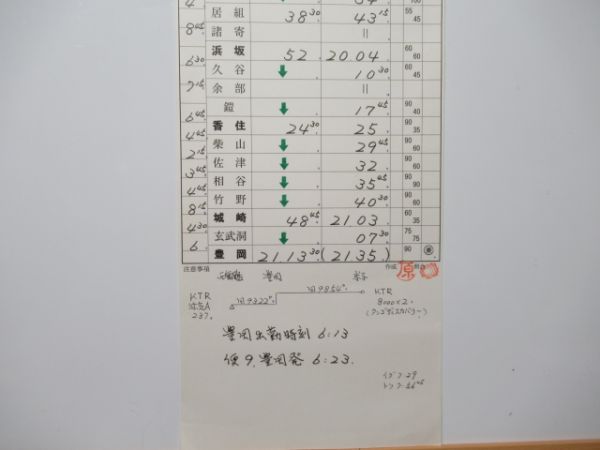 居組 38 30 43 15 55 45
8 45 諸寄 ||
浜坂 52. 20.04. 60 60
6 30 久谷 ↓ 10 30 60 45
7 15 余部 ||
鎧 ↓ 17 45 90 40
6 45 香住 24 30 25. 90 35
4 45 柴山 ↓ 29 45 90 60
2 15 佐津 ↓ 32. 90 60
3 45 相谷 ↓ 35 45 90 60
4 45 竹野 ↓ 40 30 90 60
8 15 城崎 48 45 21.03. 60 35
4 30 玄武洞 ↓ 07 30 75 75
6. 豊岡 21.13 30 (21.35.) 90
注意事項 作成 原
豊岡 米子
回9322D 回9854D
KTR 237.
KTR 8000×2.
(タンゴディスカバリー)
豊岡出勤時刻 6:13
便9. 豊岡発 6:23.